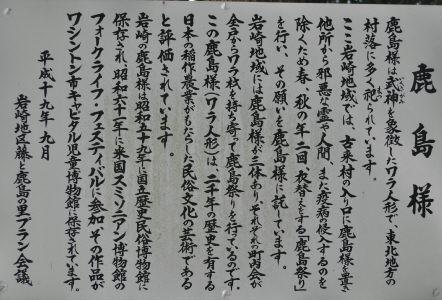 鹿島様
鹿島様は武神を象徴したワラ人形で、東北地方の
村落に多く祀られています。
ここ岩崎地域では、古来村の入り口に鹿島様を置き
他所から邪悪な霊や人間、また疫病の侵入するのを
除くため春、秋の年二回衣替えをする「鹿島祭り」
を行い、その願いを鹿島様に託しています。
岩崎地域には鹿島様が三体あり、それぞれの町内会が
全戸からワラ粧を持ち寄って鹿島祭りを行っているのです。
この鹿島様(ワラ人形)は、二千年の歴史を有する
日本の稲作農業がもたらした民俗文化の芸術である
と評価されています。
岩崎の鹿島様は昭和五十九年に国立歴史民俗博物館に
保存され、昭和六十一年に米国スミソニアン博物館の
フォークライフ・フェスティバルに参加、その作品が
ワシントン市キャピタル児童博物館に保存されています。
平成十九年九月
岩崎地区藤と鹿島の里プラン会議